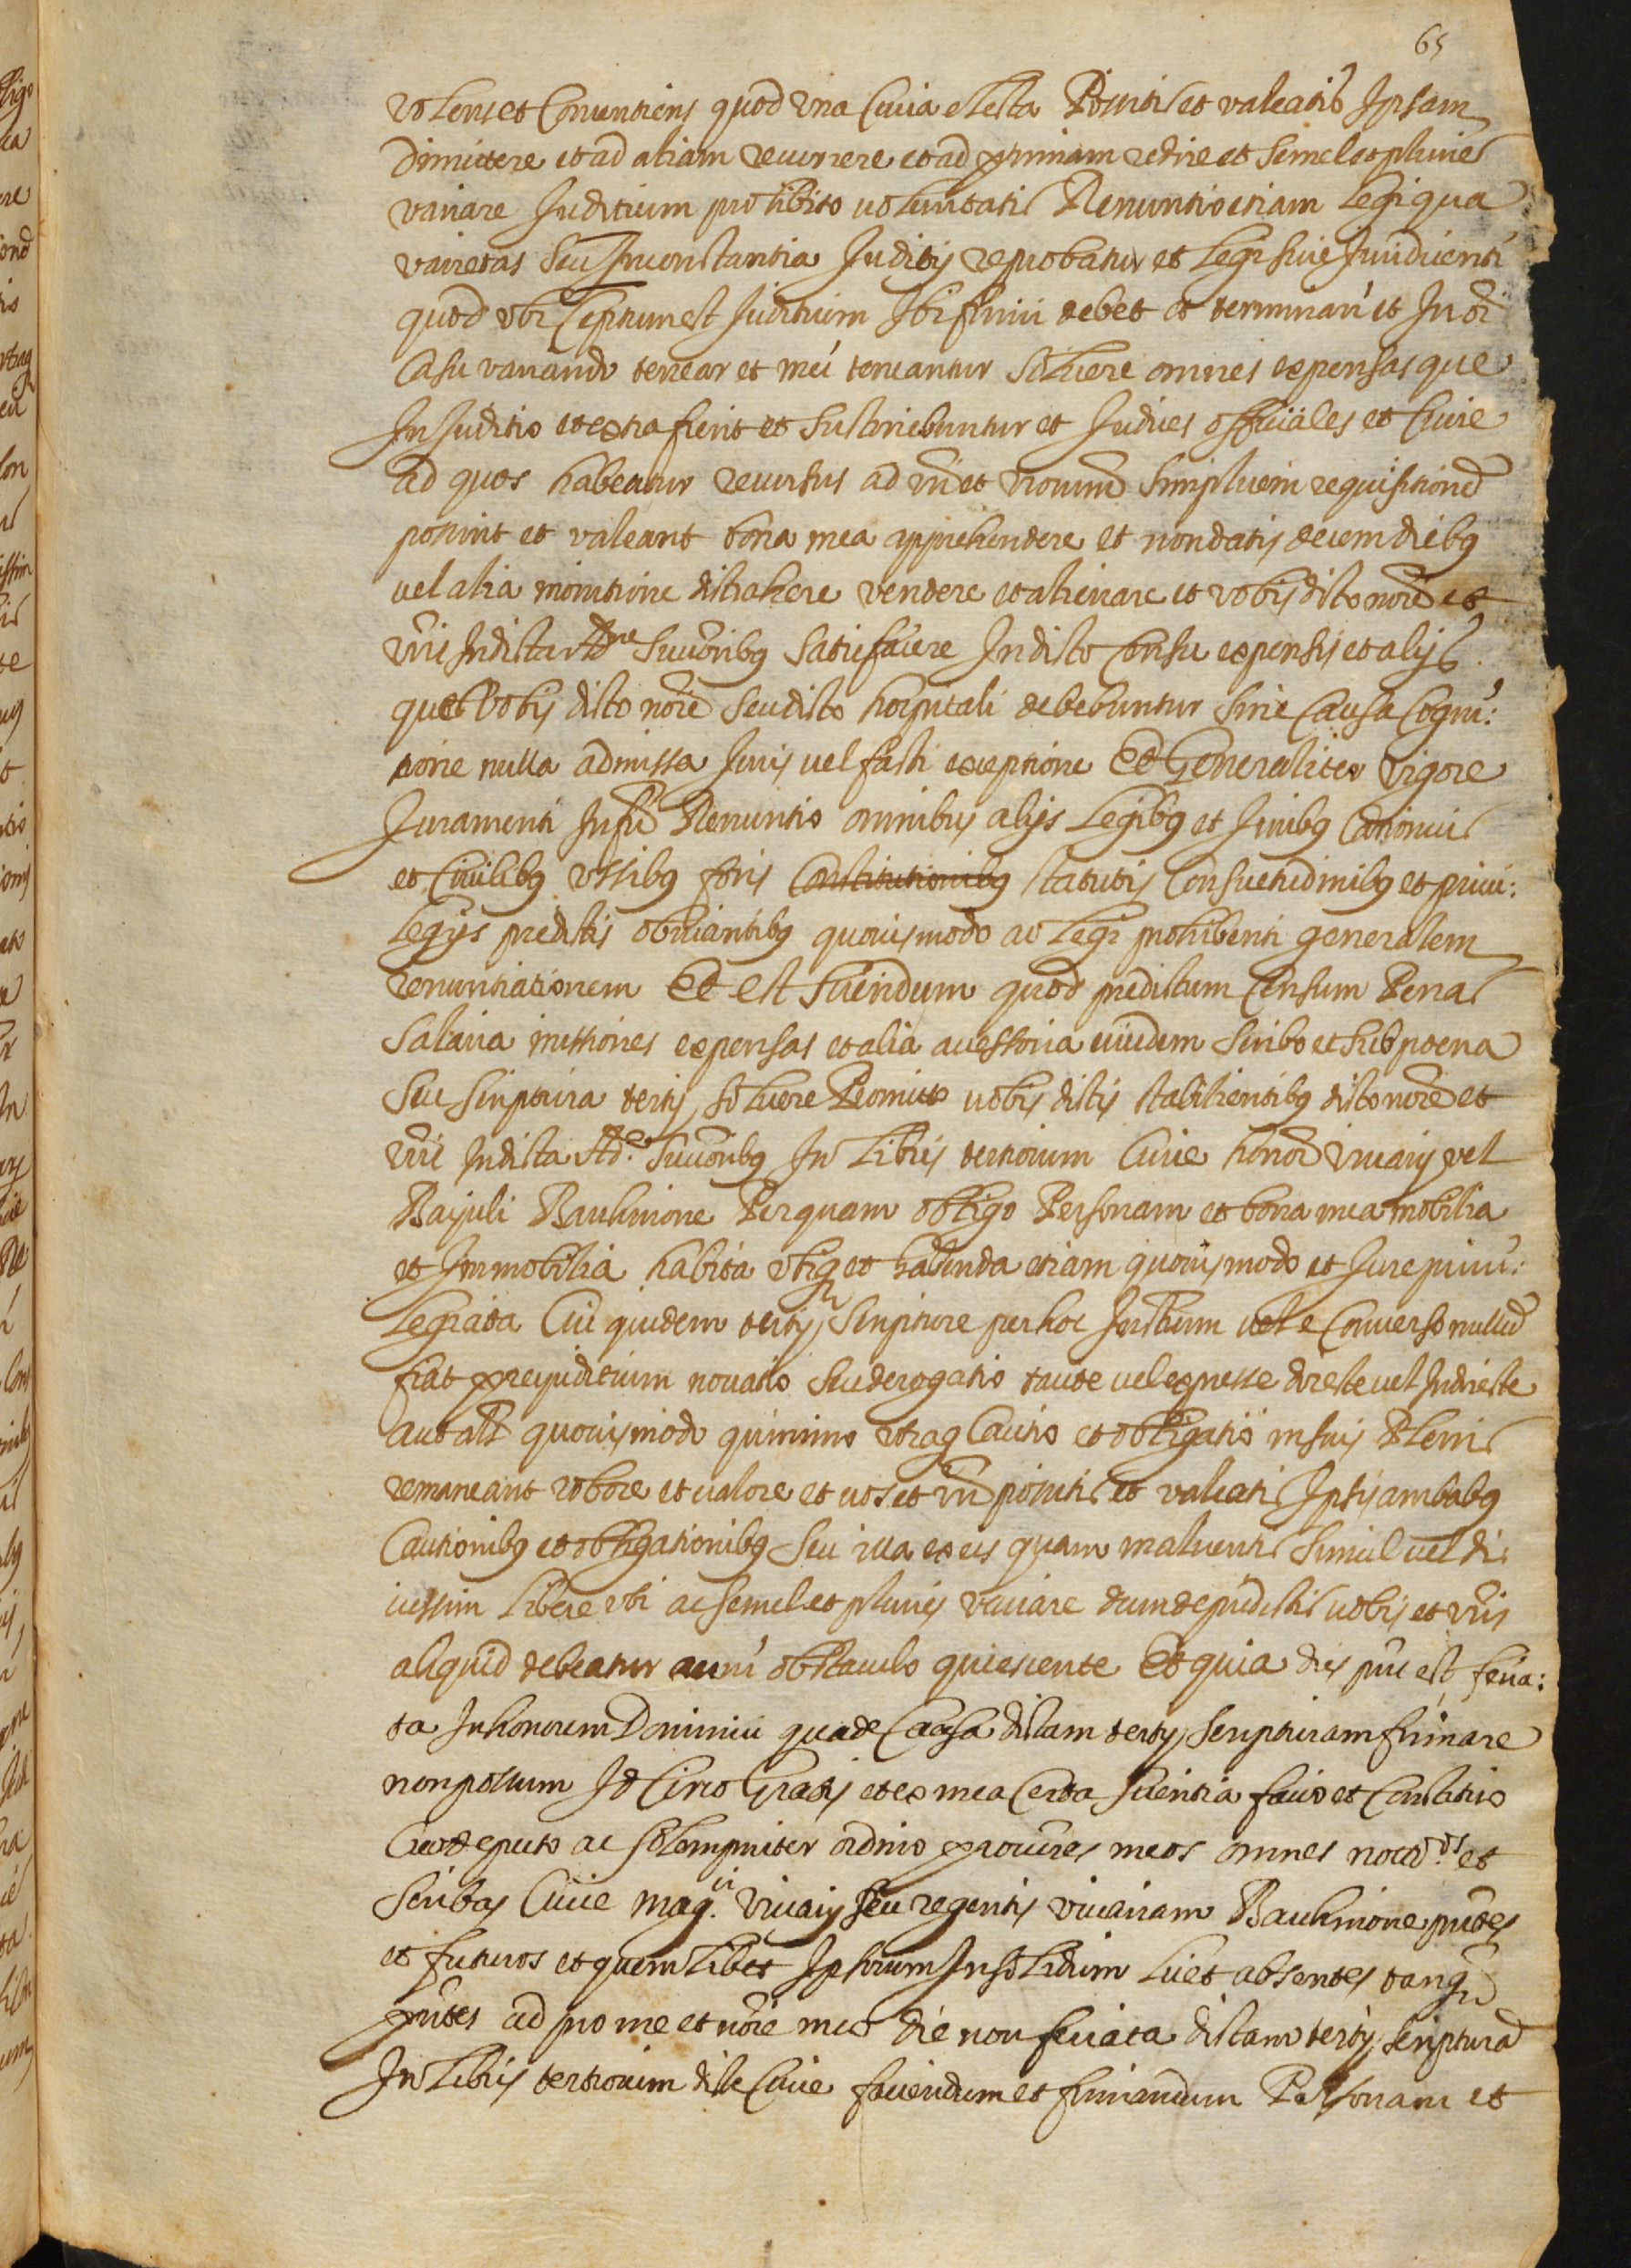 65
volens et Consentiens quod vna Curia electa Possitis et valeatis Ipsam
dimittere et ad aliam recurrere et ad primam redire et semel et pluries
variare Juditium pro libito voluntatis Renuntio etiam Legi qua
varietas seu Inconstantia Juditij reprobatur et Legi siue Juri dicenti
quod vbi Ceptum est Juditium Ibi finiri debet et terminari et In di
Casu variando tenear et mei teneantur soluere omnes expensas que
In Juditio et extra fient et sustinebuntur et Judices officiales et Curie
ad quos habeatur recursus ad vri et vrorum simplicem requisitionem
possint et valeant bona mea apprehendere et non datis decem diebus
vel alia monitione distrahere vendere et alienare et vobis dicto noie et
vris In dicta Adne Succoribus satisfacere In dicto Censu expensis et alijs
que vobis dicto noie seu dicto hospitali debebuntur sine Causa Cogni:
tione nulla admissa Juris vel facti exceptione Et Generaliter vigore
Juramenti Infri Renuntio omnibus alijs Legibus et Juribus Canonicis
et Ciuilibus vssibus foris Constitutionibus statutis Consuetudinibus et priui:
Legijs predictis obuiantibus quouismodo ac Legi prohibenti generalem
renuntiationem Et est sciendum quod predictum Censum Penas
Salaria missiones expensas et alia accessoria eiusdem scribo et sub poena
seu scriptura tertij soluere Promitto vobis dictis stabilientibus dicto noie et
vris In dicta Adne Succoribus In Libris tertiorum Curie honor Vicarij vel
Bajuli Barchinone Per quam obligo Personam et bona mea mobilia
et Immobilia habita vbique et habenda etiam quouismodo et Jure priui:
Legiata Cui quidem tertij scripture per hoc Instrum vel e Conuerso nullum
fiat prejuditium nouatio seu derogatio tacite vel expresse directe vel Indirecte
aut als quouismodo quinimo vtraq Cautio et obligatio in suis Plenis
remaneant robore et valore et vos et vri possitis et valeatis Ipsis ambabus
Cautionibus et obligationibus seu illa ex eis quam malueritis simul vel di
uissim Libere vti ac semel et pluries variare dum de predictis vobis et vris
aliquid debeatur omni obstaculo quiescente Et quia dies pns est feria:
ta In honorem Dominici qua de Causa dictam tertij scripturam firmare
non possum Id Circo Gratis et ex mea Certa scientia facio et Constituo
Creo deputo ac solempniter ordino procures meos omnes notarios et
scribas Curie magci Vicarij seu regentis vicariam Barchinone pntes
et futuros et quemlibet Ipsorum In solidum Licet absentes tanq
pntes ad pro me et noie meo die non feriata dictam tertij scripturam
In Libris tertiorum dicte Curie faciendum et firmandum Personam et